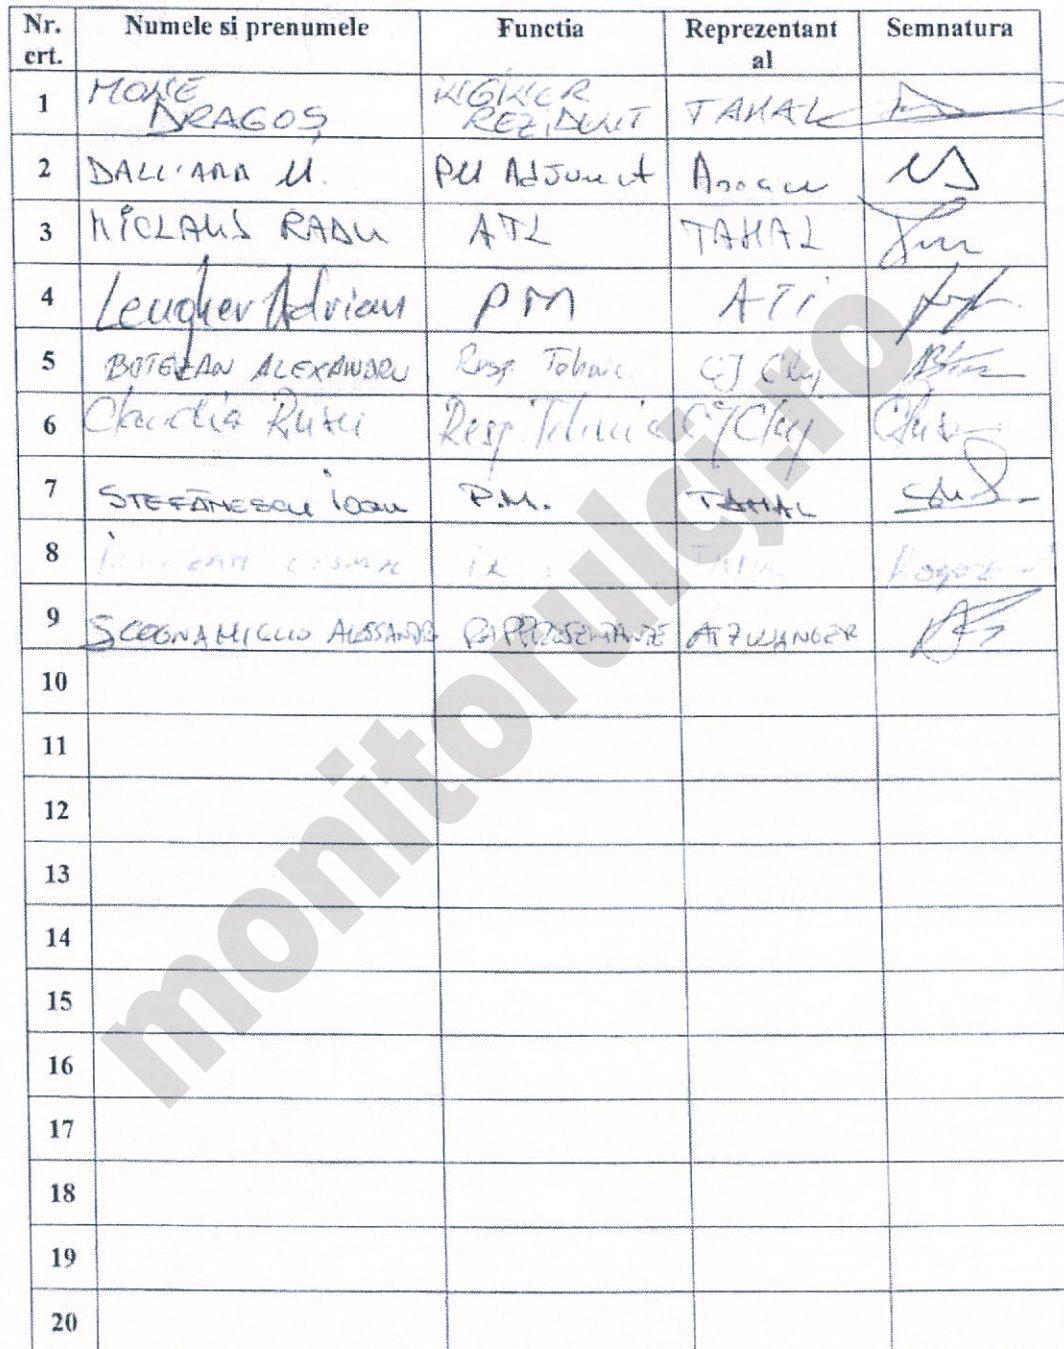 Nr. crt. Numele si prenumele Functia Reprezentant al Semnatura
1 MONE DRAGOȘ INGINER REZIDENT TAHAL
2 DALL'ARA M. PM Adjunct
3 NICLAUS RADU ATL TAHAL
4 Leugher Adrian PM ATI
5 BOTEZAN ALEXANDRU Resp. Tehnic CJ Cluj
6 Claudia Rusu Resp. Tehnic CJ Cluj
7 STEFĂNESCU IOAN P.M. TAHAL
8
9 SCOGNAMIGLIO ALESSANDRO RAPPRESENTANTE ATZWANGER
10
11
12
13
14
15
16
17
18
19
20
monitorulcj.ro